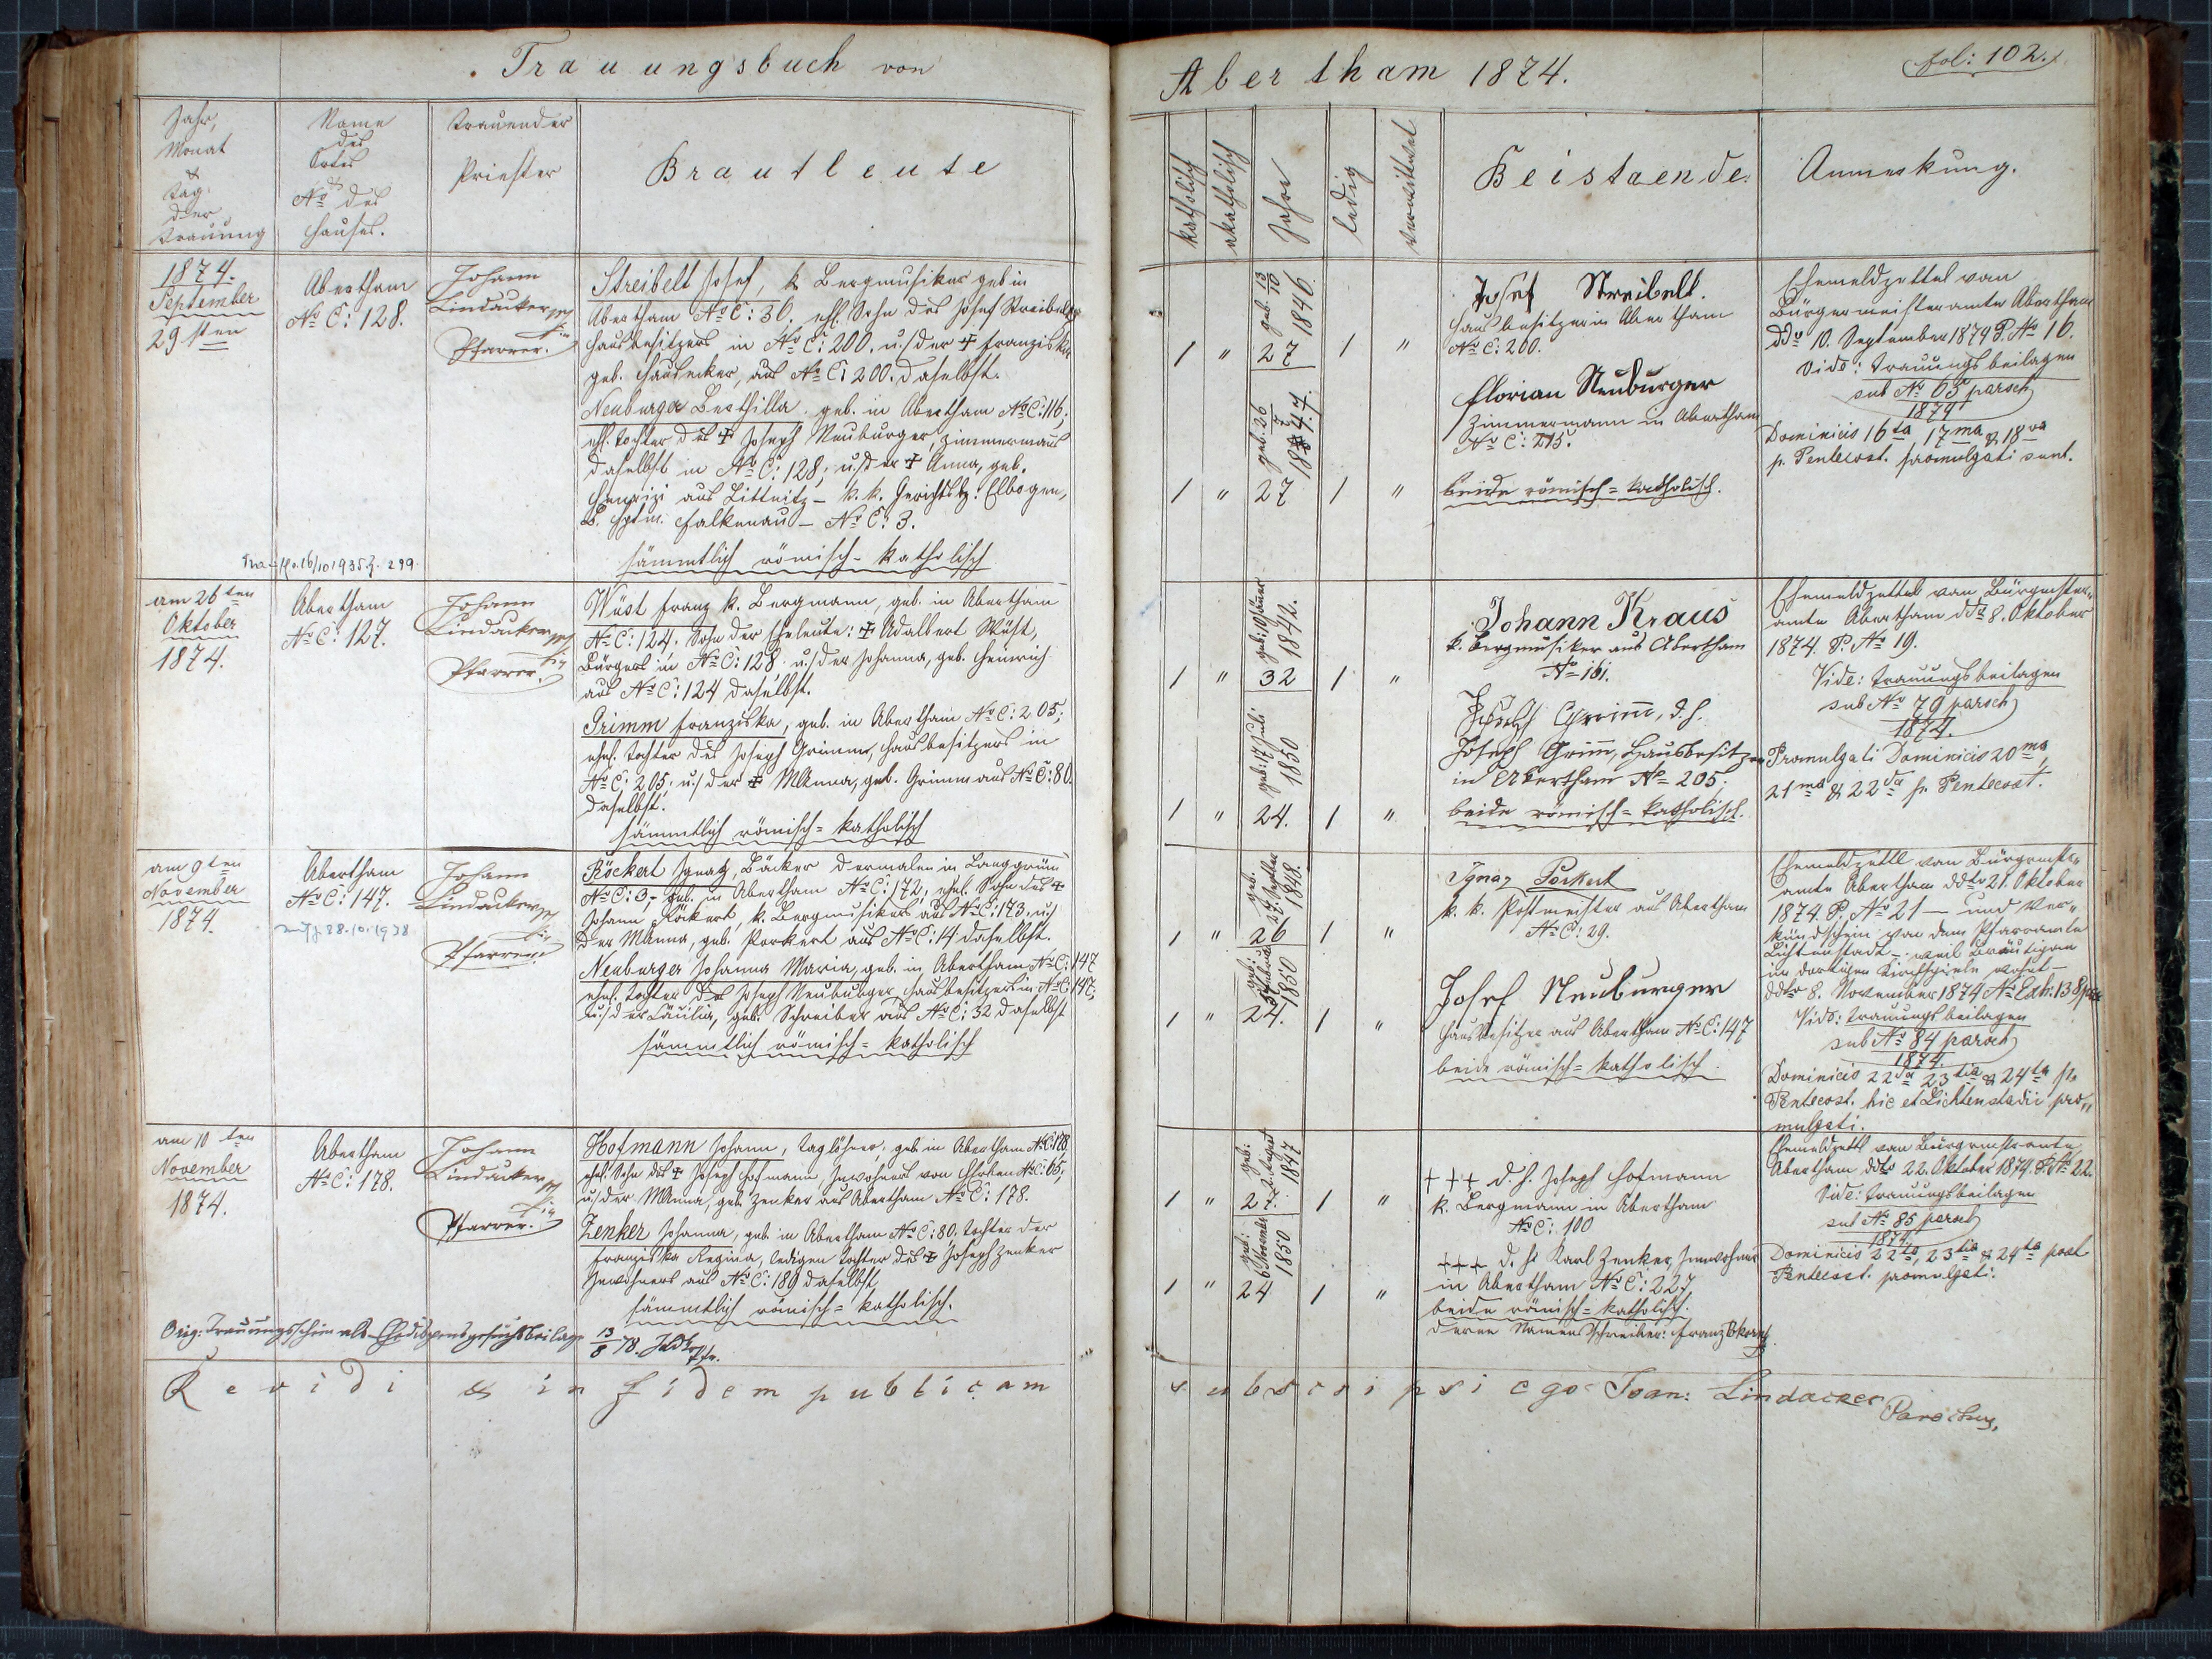 Trauungsbuch von
Abertham 1874.
fol: 102.
Jahr,
Monat
&
Tag
der
Trauung
Name
des
Ortes
&
No des
Hauses.
Trauender
Priester
Brautleute
katholisch
akatholisch
Jahre
ledig
verwitwet
Beistaende.
Anmerkung.
1874.
September
29ten
Abertham
No C: 128.
Johann
Lindacker
Pfarrer.
Streibelt Josef, k. Bergmusiker geb in
Abertham No C: 30. ehl. Sohn des Josef Streibelt
Hausbesitzers in No C: 200. u./ der † Franziska
geb. Hausecker, aus No C: 200. daselbst.
Neuburger Berthilla. geb. in Abertham No C: 116;
ehl. Tochter des † Joseph Neuburger, Zimmermann
daselbst in No C: 128; u./ der † Anna, geb.
aus Littnitz – k. k. Gerichtsbz: Elbogen,
B. Hptm. Falkenau – No C: 3.
sämmtlich römisch-katholisch
1 " 27 1 "
geb. 13/10 1846.
1 " 27 1 "
geb. 26/7 1847.
Josef Streibelt.
Hausbesitzer in Abertham
No C: 200.
Florian Neuburger
Zimmermann in Abertham
No C: 215.
beide römisch-katholisch.
Ehemeldzettel vom
Bürgermeisteramte Abertham
ddo 10. September 1874 P. No 16.
Vide: Trauungsbeilagen
sub No 65 parsch
1874
Dominicis 16ta 17ma & 18va
p. Pentecost. promulgati sunt.
16/10 1935 Z. 299.
am 26ten
Oktober
1874.
Abertham
No C: 127.
Johann
Lindacker
Pfarrer.
Wüst Franz k. Bergmann, geb. in Abertham
No C: 124. Sohn der Eheleute: † Adalbert Wüst,
Bürgers in No C: 128 u./ der Johanna, geb. Heinrich
aus No C: 124 daselbst.
Grimm Franziska, geb. in Abertham No C: 205;
ehel. Tochter des Joseph Grimm, Hausbesitzers in
No C: 205; u./ der † MAnna, geb. Grimm aus No C: 80.
daselbst.
sämmtlich römisch-katholisch
1 " 32 1 "
geb: 10 Jänner 1842.
1 " 24. 1 "
geb: 17 Juli 1850
Johann Kraus
k. Bergmusiker aus Abertham
No 161.
Joseph Grim, d. h.
Joseph Grim, Hausbesitzer
in Abertham No 205;
beide römisch-katholisch.
Ehemeldzettel vom Bürgmster„
amte Abertham ddo 8. Oktober
1874. P. No 19.
Vide: Trauungsbeilagen
sub No 79 parsch
1874.
Promulgati Dominicis 20ma,
21ma & 22da p. Pentecost.
am 9ten
November
1874.
Abertham
No C: 147.
28.10.1938
Johann
Lindacker
Pfarrer.
Röckert Ignatz, Bäcker dermalen in Langgrün
No C: 3, geb. in Abertham No C: 172, ehel. Sohn des †
Johann Röckert, k. Bergmusikers aus No C: 173. u./
der MAnna, geb. Porkert aus No C: 14 daselbst.
Neuburger Johanna Maria, geb. in Abertham No C: 147
ehel. Tochter des Joseph Neuburger Hausbesitzers in No C: 147;
u./ der Cäcilia, geb. Schreiber aus No C: 32 daselbst
sämmtlich römisch-katholisch
1 " 26 1 "
geb. 27. Septber 1848.
1 " 24. 1 "
1850
Ignaz Porkert
k. k. Postmeister aus Abertham
No C: 29.
Josef Neuburger
Hausbesitzer aus Abertham No C: 147
beide römisch-katholisch.
Ehemeldzettl vom Bürgmstr„
amte Abertham ddto 21. Oktober
1874. P. No 21 – und Ver„
kündschein von dem Pfarramte
Lichtenstadt – weil Bräutigam
im dortigen Kirchspiele wohnt –
ddto 8. November 1874 No Exh: 138
Vide: Trauungsbeilagen
sub No 84 parsch
1874.
Dominicis 22da 23tia & 24ta p.
Pentecost. hic et Lichtenstadii pro„
mulgati.
am 10ten
November
1874.
Abertham
No C: 178.
Johann
Lindacker
Pfarrer.
Hofmann Johann, Taglöhner, geb in Abertham No C: 178,
ehel. Sohn des † Joseph Hofmann, Inwohners von No C: 65;
u./ der MAnna, geb. Zenker aus Abertham No C: 178.
Zenker Johanna, geb. in Abertham No C: 80, Tochter der
Franziska Regina, ledigen Tochter des † Joseph Zenker
Inwohners aus No C: 189 daselbst,
sämmtlich römisch-katholisch.
1 " 27. 1 "
geb: August 1847
1 " 24 1 "
geb: 6 Novembr 1850
+++ d. h. Joseph Hofmann
k. Bergmann in Abertham
No C: 100
+++ d. h. Karl Zenker, Inwohner
in Abertham No C: 227,
beide römisch-katholisch.
deren Namens Schreiber: Franz
Ehemeldzettl vom Bürgermstr amte
Abertham ddto 22. Oktober 1874. P. No 22.
Vide: Trauungsbeilagen
sub No 85 parsch
1874.
Dominicis 22da, 23tia & 24ta post
Pentecost. promulgati.
Orig: Trauungsschein als Ehedispensgesuchsbeilage 13/8 78.
Revidi & in fidem publicam
subscripsi ego Joan: Lindacker
Parochus.